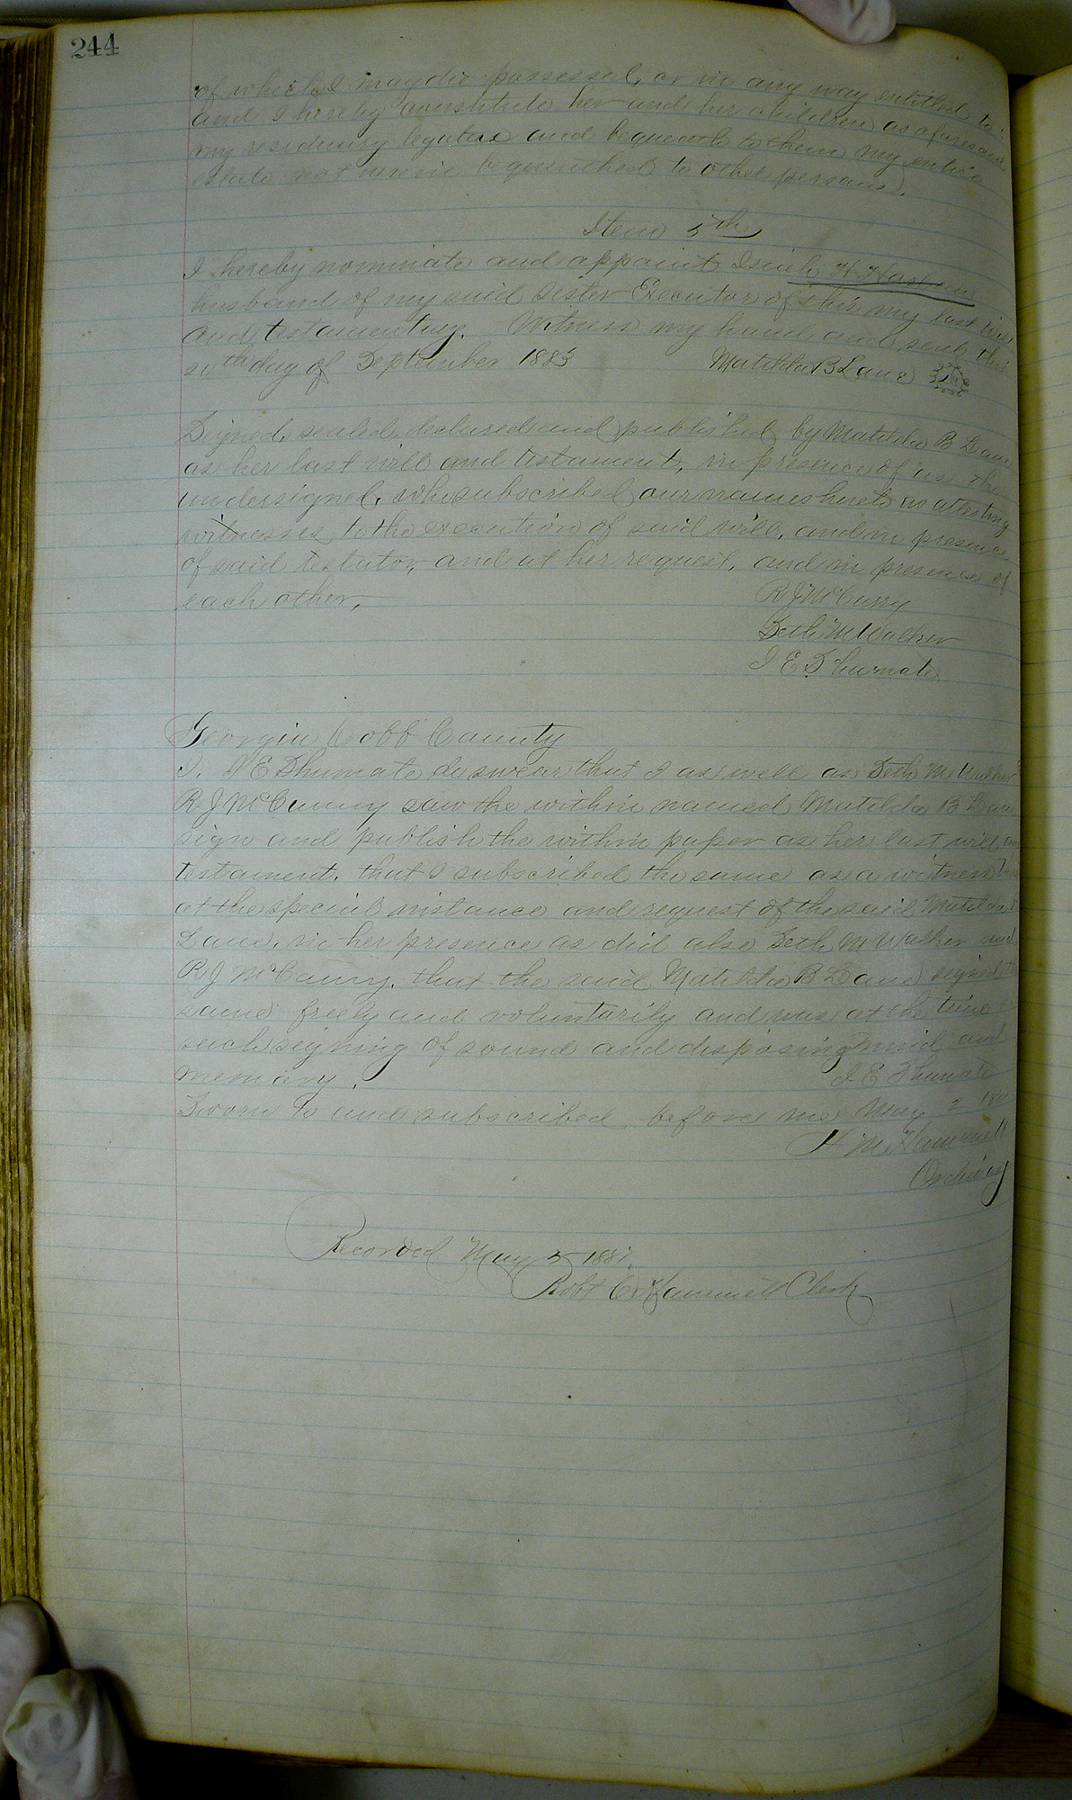 244
of which I may die possessed, or in any way entitled to.
and I hereby constitute her and her children as aforesaid
my residuary legatees and bequeath to them my entire
estate not herein bequeathed to other persons.
Item 5th
I hereby nominate and appoint Isiah H
husband of my said sister Executor of this my last will
and testamentary. Witness my hand and seal this
day of September 1883 Matilda B Lane
Signed, sealed, declared and published by Matilda B Lane
as her last will and testament, in presence of us the
undersigned, who subscribed our names hereto as attesting
witnesses to the execution of said will, and in presence
of said testator, and at her request, and in presence of
each other,
R J McCurry
Seth M Walker
I E Shumate
Georgia Cobb County
I, I E Shumate do swear that I as well as Seth M Walker
R J McCurry saw the within named Matilda B Lane
sign and publish the within paper as her last will and
testament, that I subscribed the same as a witness
at the special instance and request of the said Matilda
Lane, in her presence as did also Seth M Walker and
R J McCurry, that the said Matilda B Lane signed
same freely and voluntarily and was at the time
such signing of sound and disposing mind and
memory. I E Shumate
Sworn to and subscribed before me May 2
H M Hammett
Ordinary
Recorded May 5
Robt C Hammett Clerk